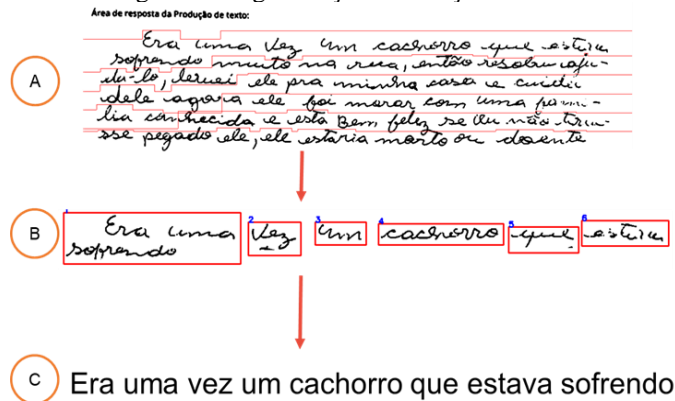 Área de resposta da Produção de texto:
A
Era uma vez um cachorro que
sofrendo muito na rua, então resolvi aju-
da-lo, levei ele pra minha casa e cuidei
dele agora ele foi morar com uma fami-
lia conhecida e esta Bem feliz se eu não
sse pegado ele, ele estaria morto ou doente
B
1 2 3 4 5 6
Era uma vez um cachorro que
sofrendo
C
Era uma vez um cachorro que estava sofrendo